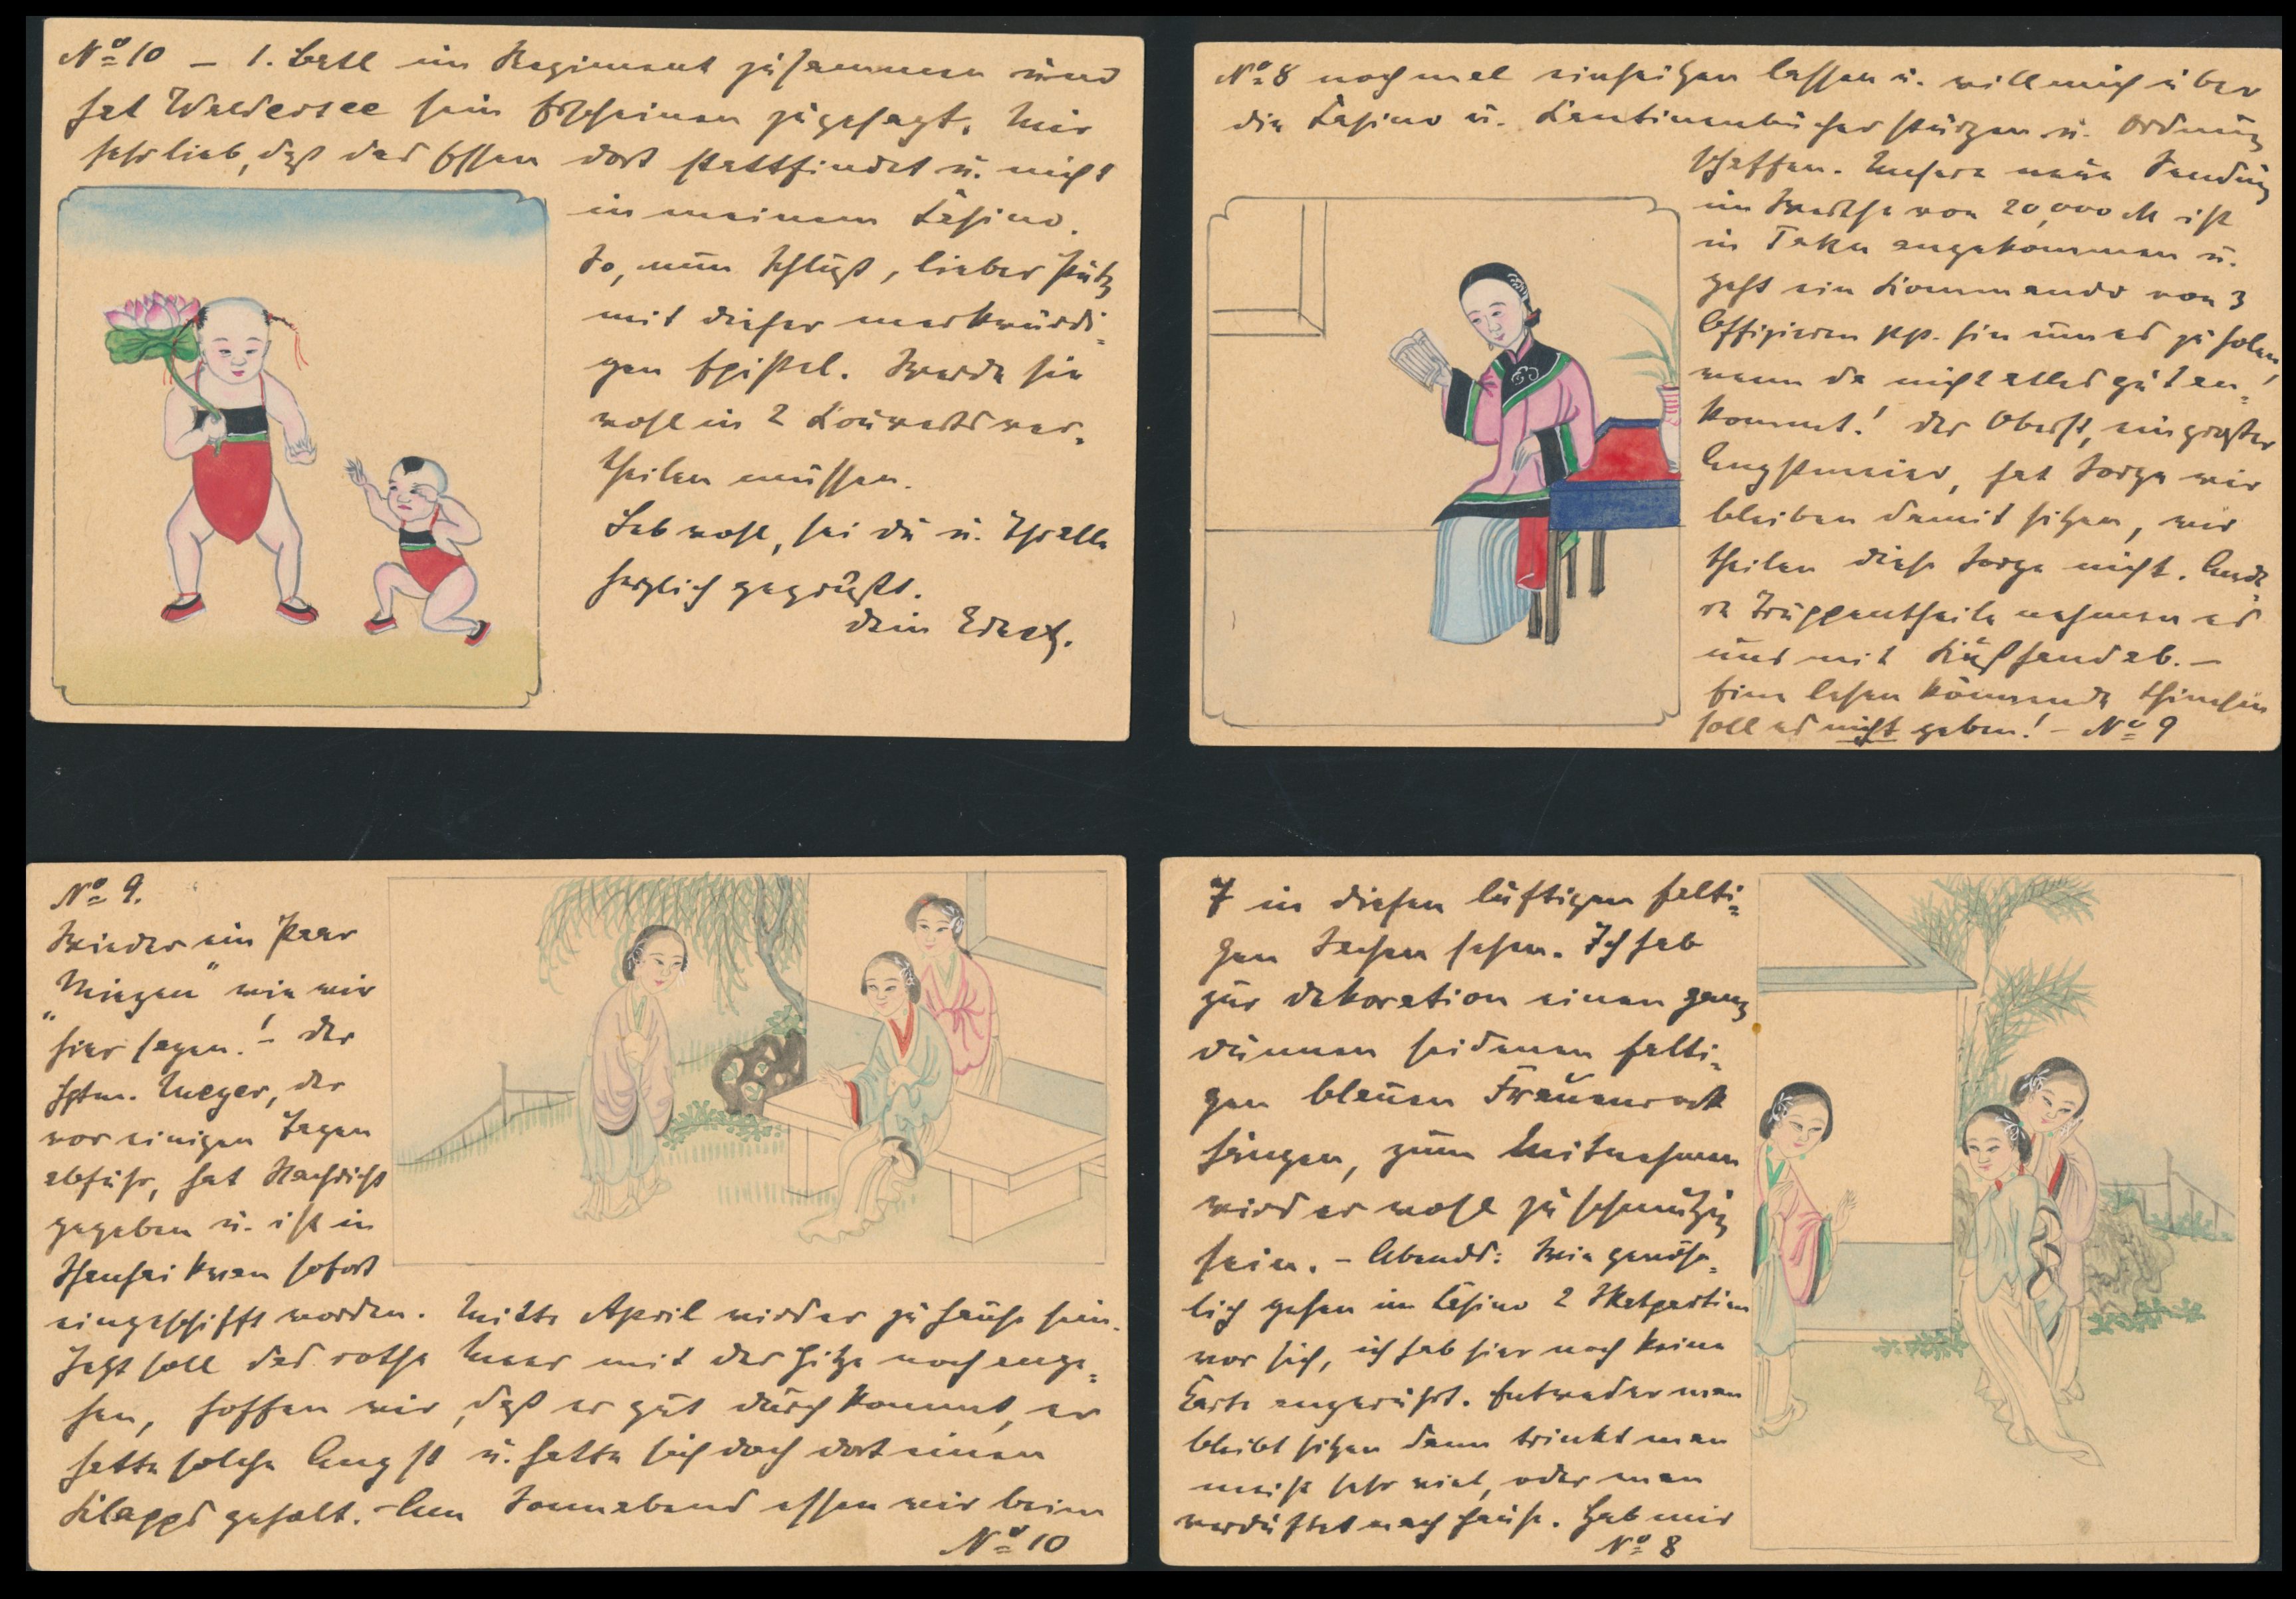 No 10 – 1. Batl im Regiment zusammen und
hat Waldersee sein Erscheinen zugesagt. Mir
sehr lieb, daß das Essen dort stattfindet u. nicht
in meinem Casino.
So, nun Schluß, lieber
mit dieser merkwürdi-
gen Epistel. Werde sie
wohl in 2 Kouverts ver-
theilen müssen.
Leb wohl, sei du u.
herzlich gegrüßt.
Dein
No 8 noch mal einheizen lassen u. will mich über
die Casino u. Kantinenbücher stürzen u. Ordnung
schaffen. Unsere neue Sendung
im Werthe von 20,000 M ist
in Taku angekommen u.
geht ein Kommando von 3
Offizieren pp. hin um es zu holen,
wenn da nicht alles gut an-
kommt! Der Oberst, ein großer
Angstmeier, hat Sorge wir
bleiben damit sitzen, wir
theilen diese Sorge nicht. Ande-
re Truppentheile nehmen es
uns mit Kußhand ab. –
Eine lesen könnende Chinesin
soll es nicht geben! – No 9
No 9.
Wieder ein Paar
"Miezen" wie wir
hier sagen! – Der
Hptm. Meyer, der
vor einigen Tagen
abfuhr, hat Nachricht
gegeben u. ist in
Schanhaikwan sofort
eingeschifft worden. Mitte April wird er zu Hause sein.
Jetzt soll das rothe Meer mit der Hitze noch ange-
hen, hoffen wir, daß er gut durch kommt, er
hatte solche Angst u. hatte sich doch dort einen
Klapps geholt. – Am Sonnabend essen wir beim
No 10
7 in diesen luftigen falti-
gen Sachen sehen. Ich hab
zur Dekoration einen ganz
dünnen seidenen falti-
gen blauen Frauenrock
hängen, zum Mitnehmen
wird er wohl zu schmutzig
sein. – Abends: Wie gewöhn-
lich gehen im Casino 2 Skatpartien
vor sich, ich hab hier noch keine
Carte angerührt. Entweder man
bleibt sitzen dann trinkt man
meist sehr viel, oder man
verduftet nach Hause. Hab mir
No 8